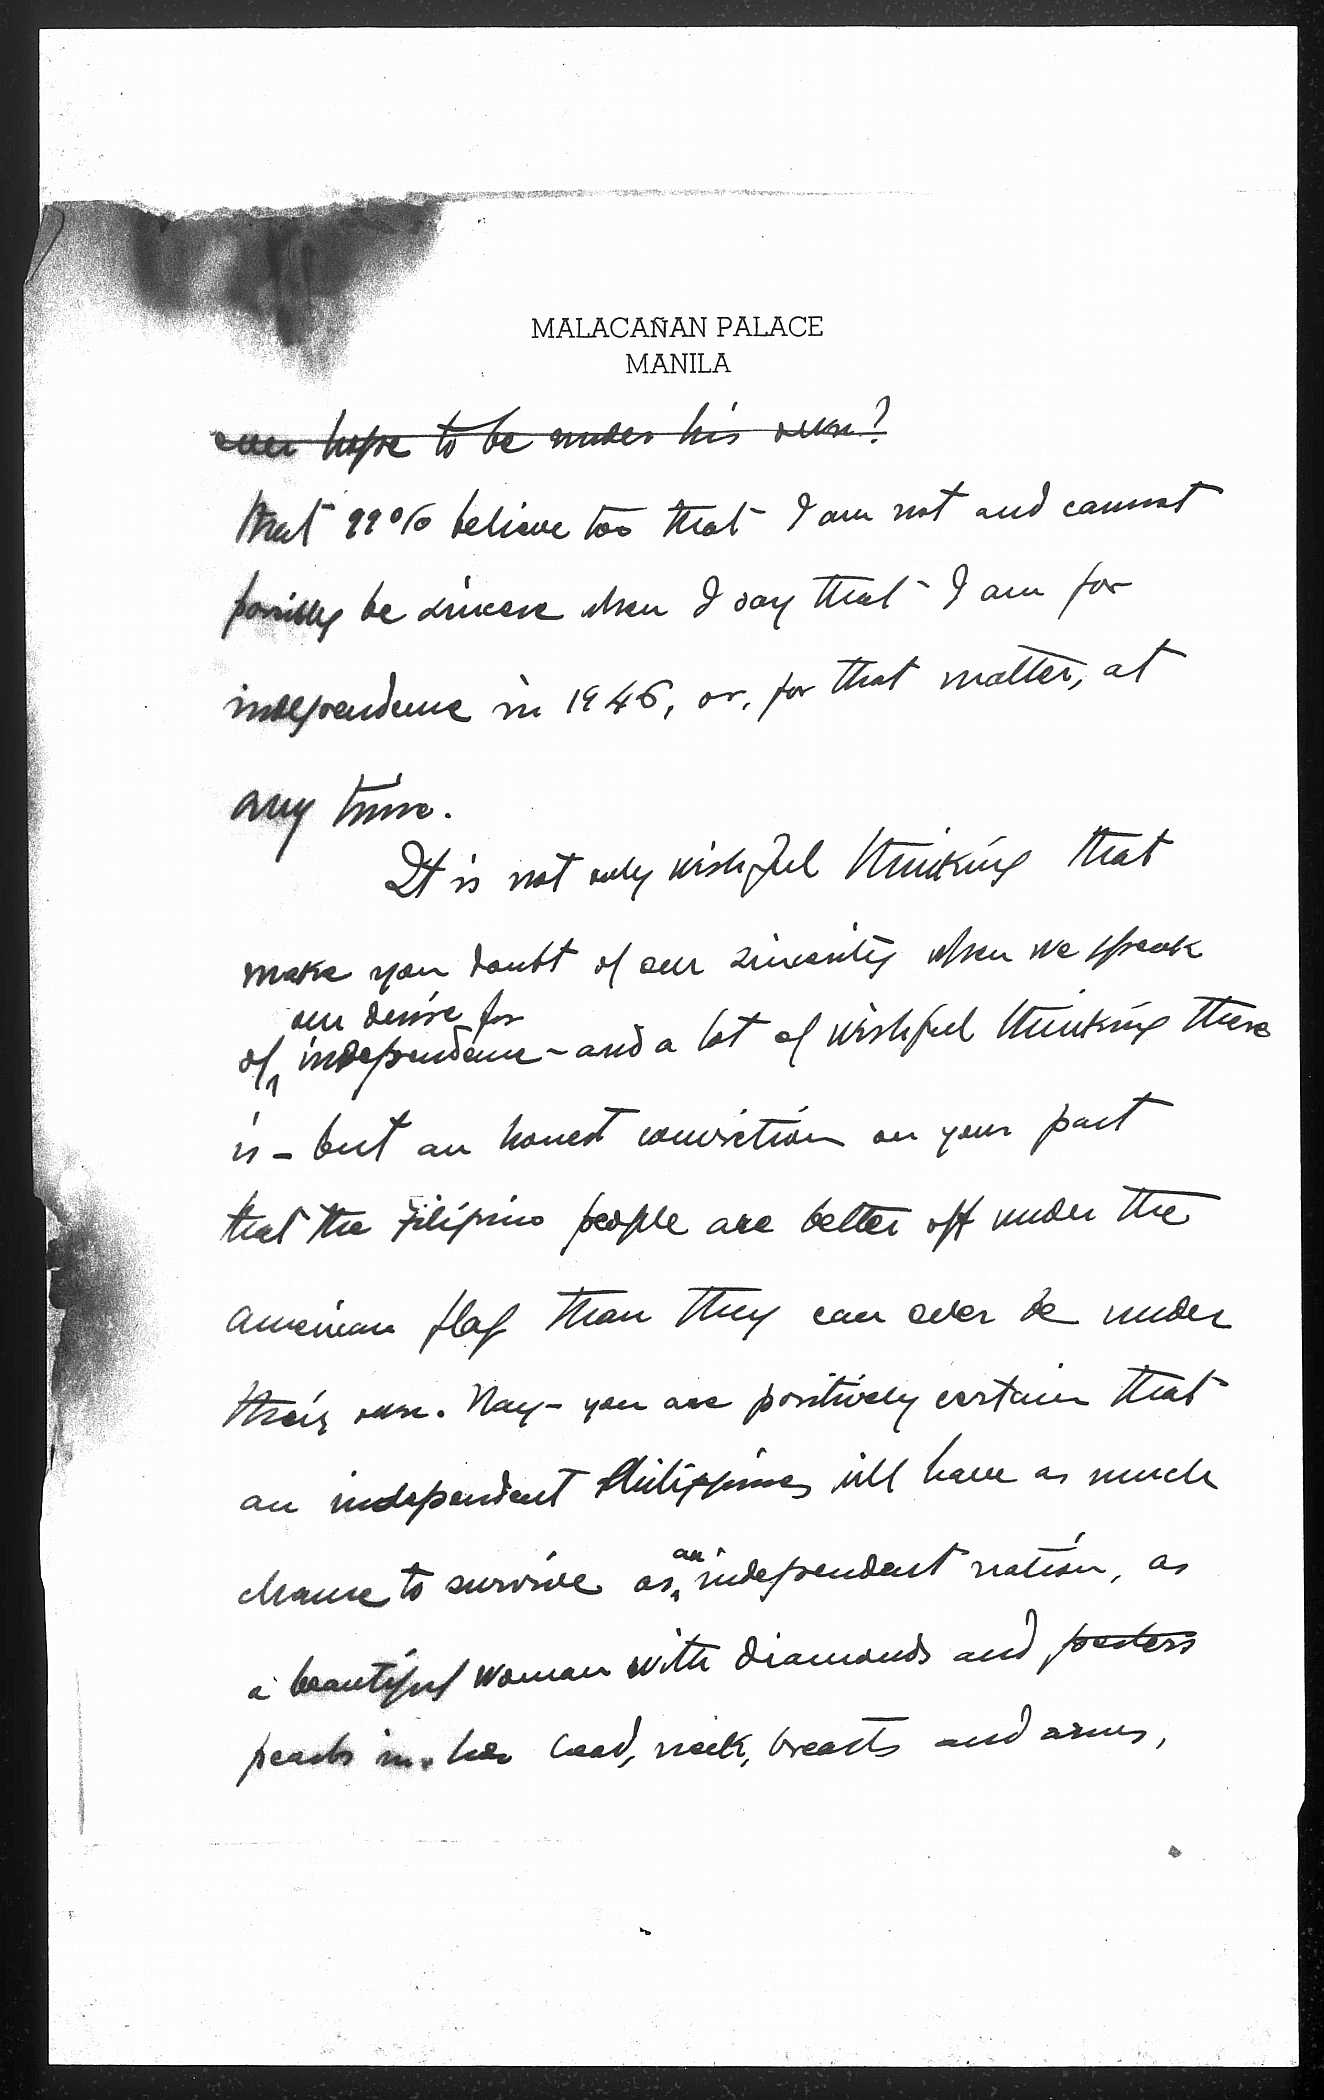 MALACAÑAN PALACE
MANILA
ever hope to be under his own?
that 99% believe too that I am not and cannot
possibly be sincere when I say that I am for
independence in 1946, or, for that matter, at
any time.
It is not only wishful thinking that
make you doubt of our sincerity when we speak
our desire for
of independence - and a lot of wishful thinking there
is - but an honest conviction on your part
that the Filipino people are better off under the
American flag than they can ever be under
their own. Nay - you are positively certain that
an independent Philippines will have as much
chance to survive as an independent nation, as
a beautiful woman with diamonds and
pearls in her head, neck, breasts and arms,